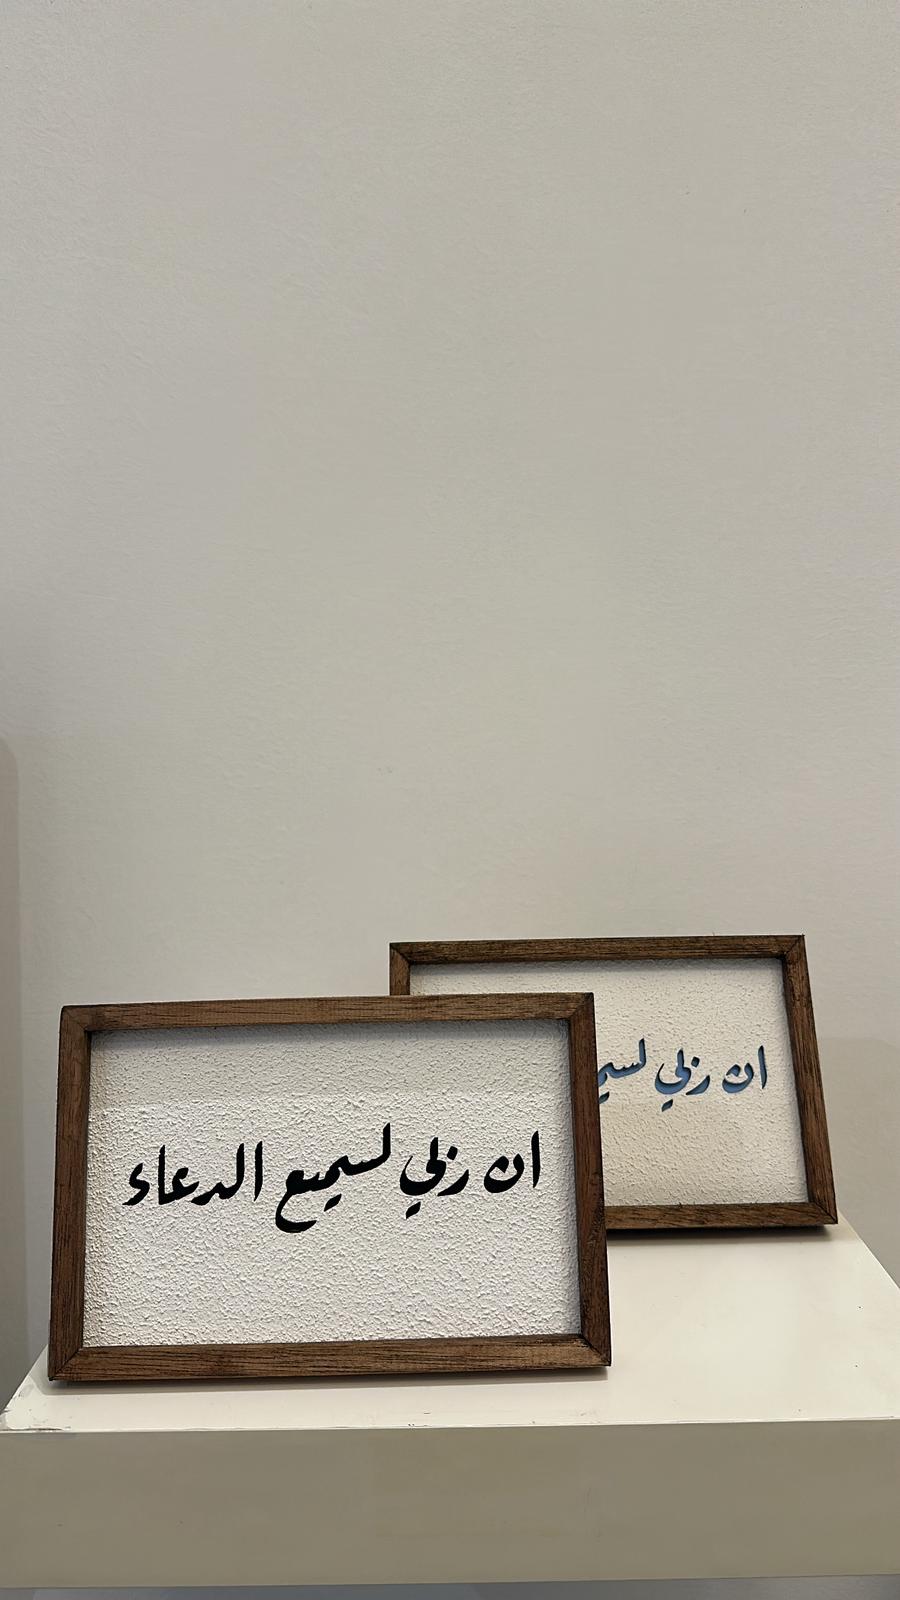 ان ربي لسميع الدعاء
ان ربي